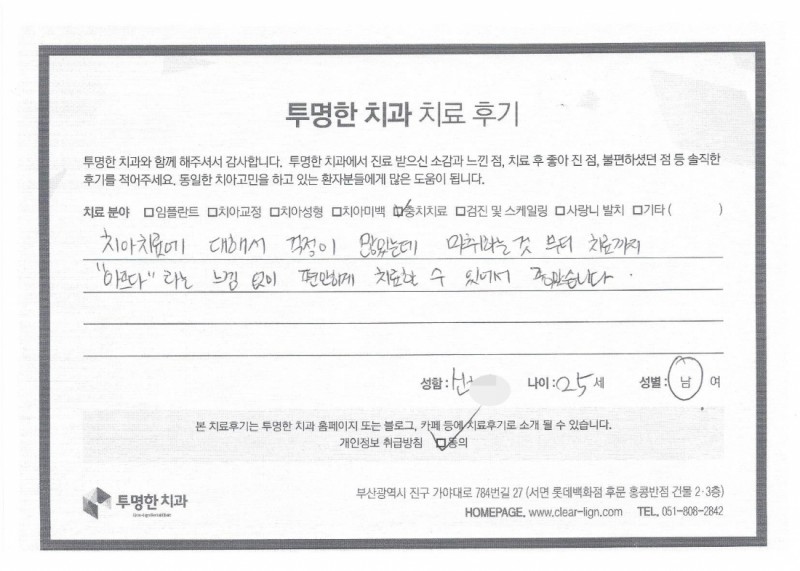 투명한 치과 치료 후기
투명한 치과와 함께 해주셔서 감사합니다. 투명한 치과에서 진료 받으신 소감과 느낀 점, 치료 후 좋아 진 점, 불편하셨던 점 등 솔직한
후기를 적어주세요. 동일한 치아고민을 하고 있는 환자분들에게 많은 도움이 됩니다.
치료 분야 □임플란트 □치아교정 □치아성형 □치아미백 ☑충치치료 □검진 및 스케일링 □사랑니 발치 □기타 ( )
치아치료에 대해서 걱정이 많았는데 마취하는것 부터 치료까지
"아프다" 라는 느낌 없이 편안하게 치료할 수 있어서 좋았습니다.
성함 : 나이 : 25 세 성별 : 남 여
본 치료후기는 투명한 치과 홈페이지 또는 블로그, 카페 등에 치료후기로 소개 될 수 있습니다.
개인정보 취급방침 ☑동의
투명한 치과
부산광역시 진구 가야대로 784번길 27 (서면 롯데백화점 후문 홍콩반점 건물 2·3층)
HOMEPAGE. www.clear-lign.com TEL. 051-808-2842